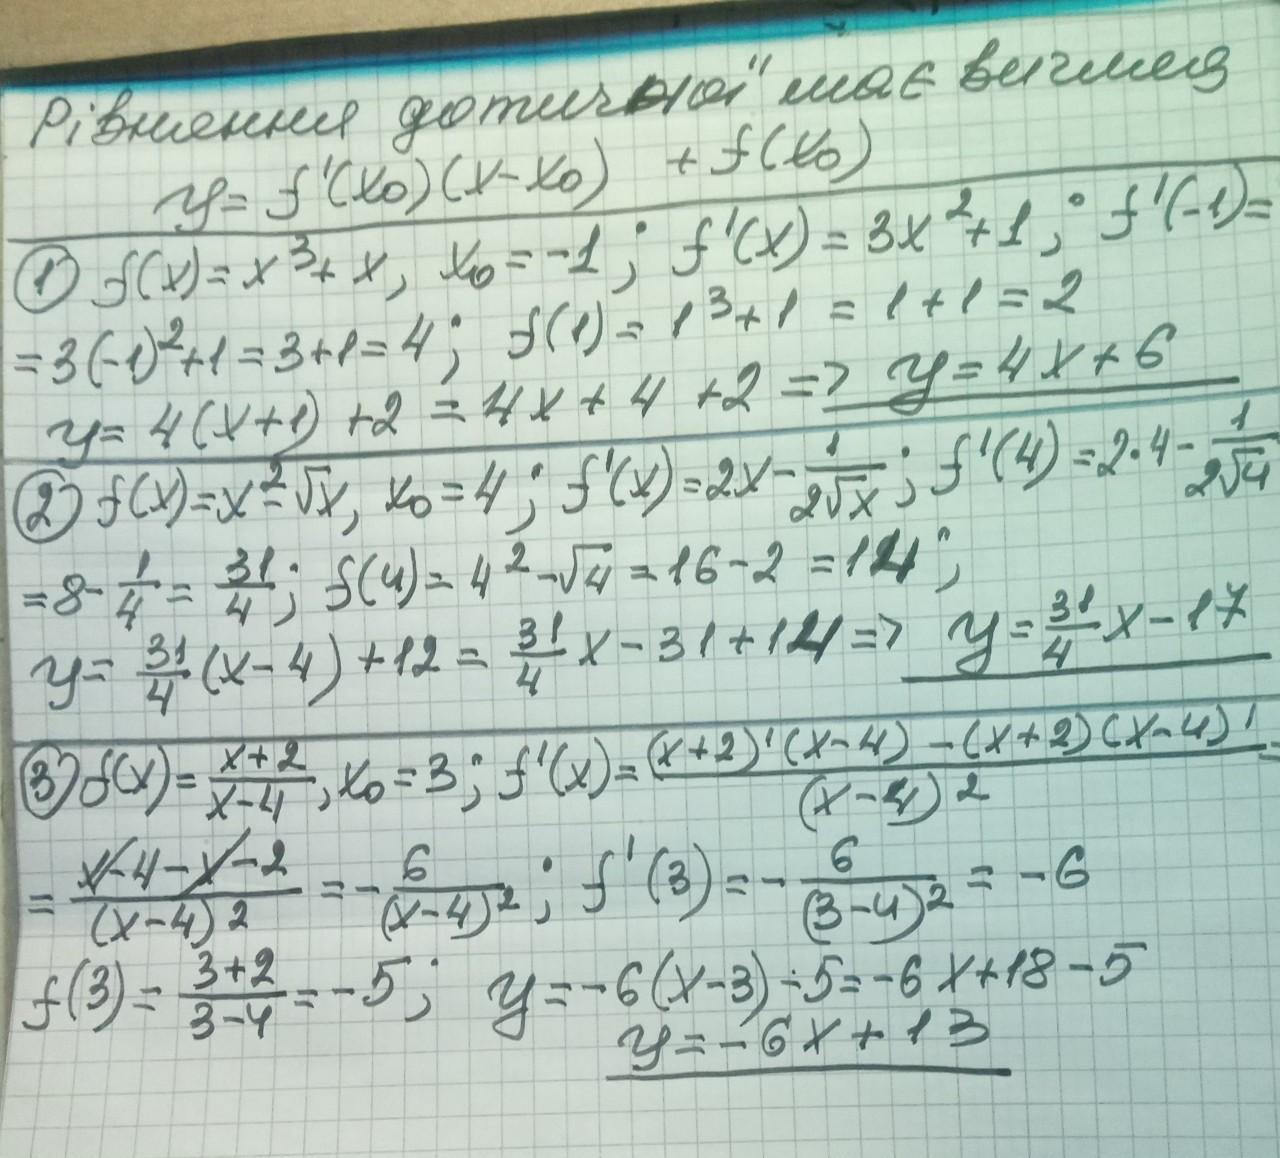 Рівняння дотичної має вигляд
y = f'(x₀)(x-x₀) + f(x₀)
① f(x) = x³+x, x₀ = -1; f'(x) = 3x²+1; f'(-1) =
= 3(-1)²+1 = 3+1 = 4; f(1) = 1³+1 = 1+1 = 2
y = 4(x+1) +2 = 4x + 4 +2 => y = 4x + 6
② f(x) = x² - √x, x₀ = 4; f'(x) = 2x - 1/(2√x); f'(4) = 2·4 - 1/(2√4)
= 8 - 1/4 = 31/4; f(4) = 4² - √4 = 16 - 2 = 14;
y = 31/4 (x-4) + 12 = 31/4 x - 31 + 14 => y = 31/4 x - 17
③ f(x) = (x+2)/(x-4), x₀ = 3; f'(x) = ((x+2)'(x-4) - (x+2)(x-4)')/(x-4)² =
= (x-4-x-2)/(x-4)² = - 6/(x-4)²; f'(3) = - 6/(3-4)² = -6
f(3) = (3+2)/(3-4) = -5; y = -6(x-3) - 5 = -6x+18 - 5
y = -6x + 13